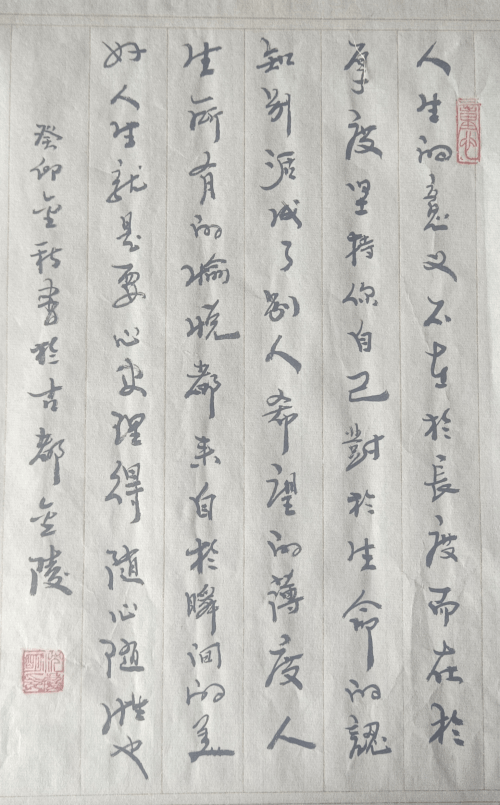 人生的意义不在於長度而在於
厚度坚持你自己對於生命的認
知别活成了别人希望的薄度人
生所有的愉悦都来自於瞬间的美
好人生就是要心安理得随心随性也
癸卯金秋書於古都金陵